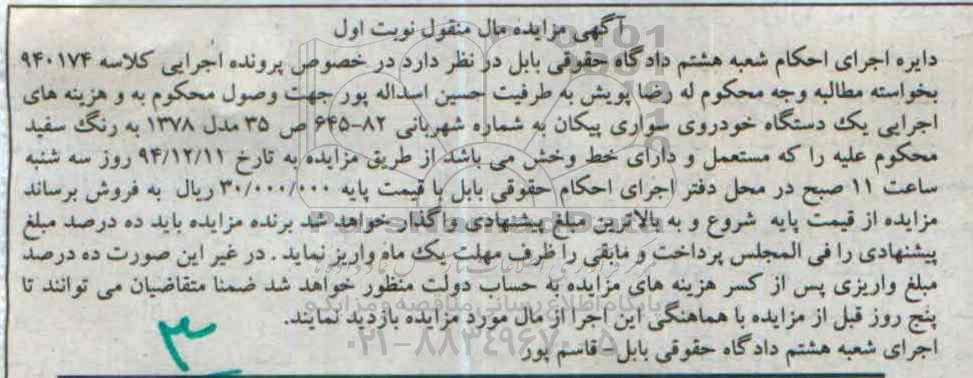 آگهی مزایده مال منقول نوبت اول
دایره اجرای احکام شعبه هشتم دادگاه حقوقی بابل در نظر دارد در خصوص پرونده اجرایی کلاسه ۹۴۰۱۷۴
بخواسته مطالبه وجه محکوم له رضا پویش به طرفیت حسین اسداله پور جهت وصول محکوم به و هزینه های
اجرایی یک دستگاه خودروی سواری پیکان به شماره شهربانی ۸۲-۶۴۵ ص ۳۵ مدل ۱۳۷۸ به رنگ سفید
محکوم علیه را که مستعمل و دارای خط وخش می باشد از طریق مزایده به تارخ ۹۴/۱۲/۱۱ روز سه شنبه
ساعت ۱۱ صبح در محل دفتر اجرای احکام حقوقی بابل با قیمت پایه ۳۰/۰۰۰/۰۰۰ ریال به فروش برساند
مزایده از قیمت پایه شروع و به بالاترین مبلغ پیشنهادی واگذار خواهد شد برنده مزایده باید ده درصد مبلغ
پیشنهادی را فی المجلس پرداخت و مابقی را ظرف مهلت یک ماه واریز نماید . در غیر این صورت ده درصد
مبلغ واریزی پس از کسر هزینه های مزایده به حساب دولت منظور خواهد شد ضمنا متقاضیان می توانند تا
پنج روز قبل از مزایده با هماهنگی این اجرا از مال مورد مزایده بازدید نمایند.
اجرای شعبه هشتم دادگاه حقوقی بابل - قاسم پور
۳